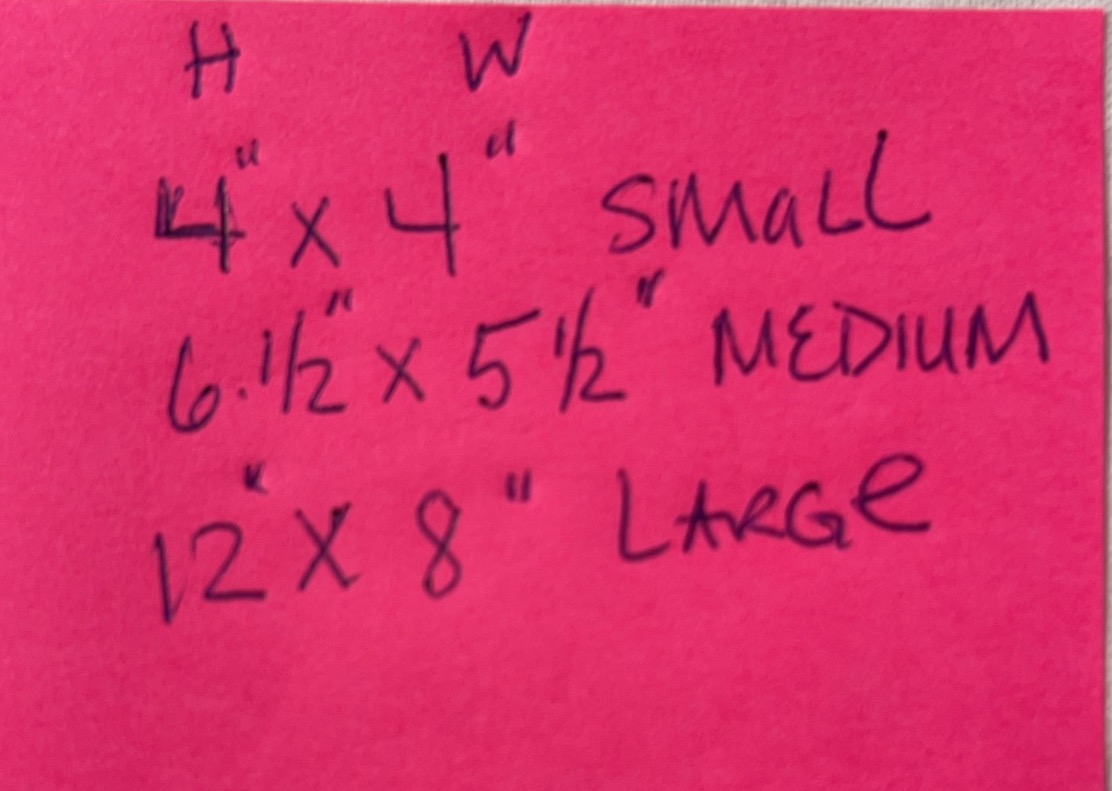 H W
4" x 4" SMaLL
6.1/2" x 5 1/2" MEDIUM
12" X 8" LARGe